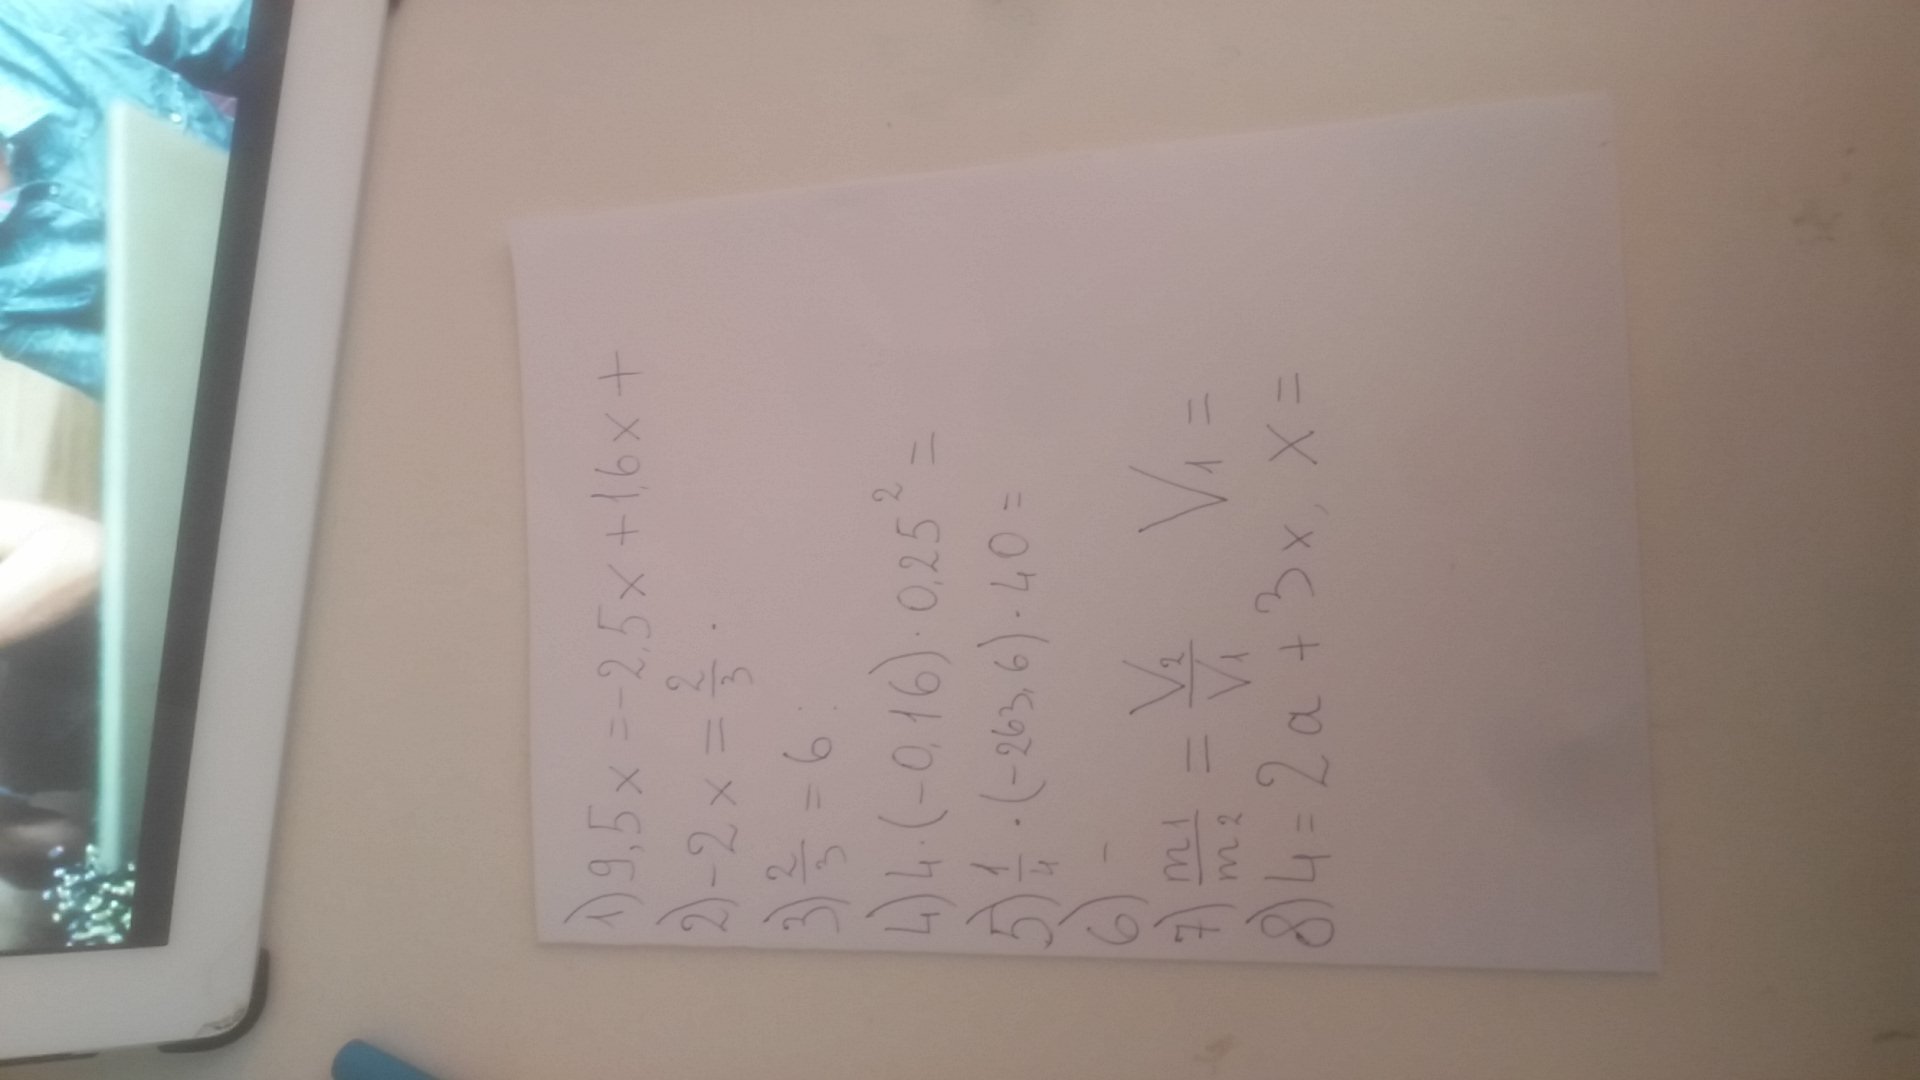 1) 9,5x = -2,5x + 1,6x +
2) -2x = 2/3 .
3) 2/3 = 6 :
4) 4·(-0,16)·0,25² =
5) 1/4 · (-263,6) · 40 =
6) -
7) m1/m2 = V2/V1 V1 =
8) 4 = 2a + 3x, x =